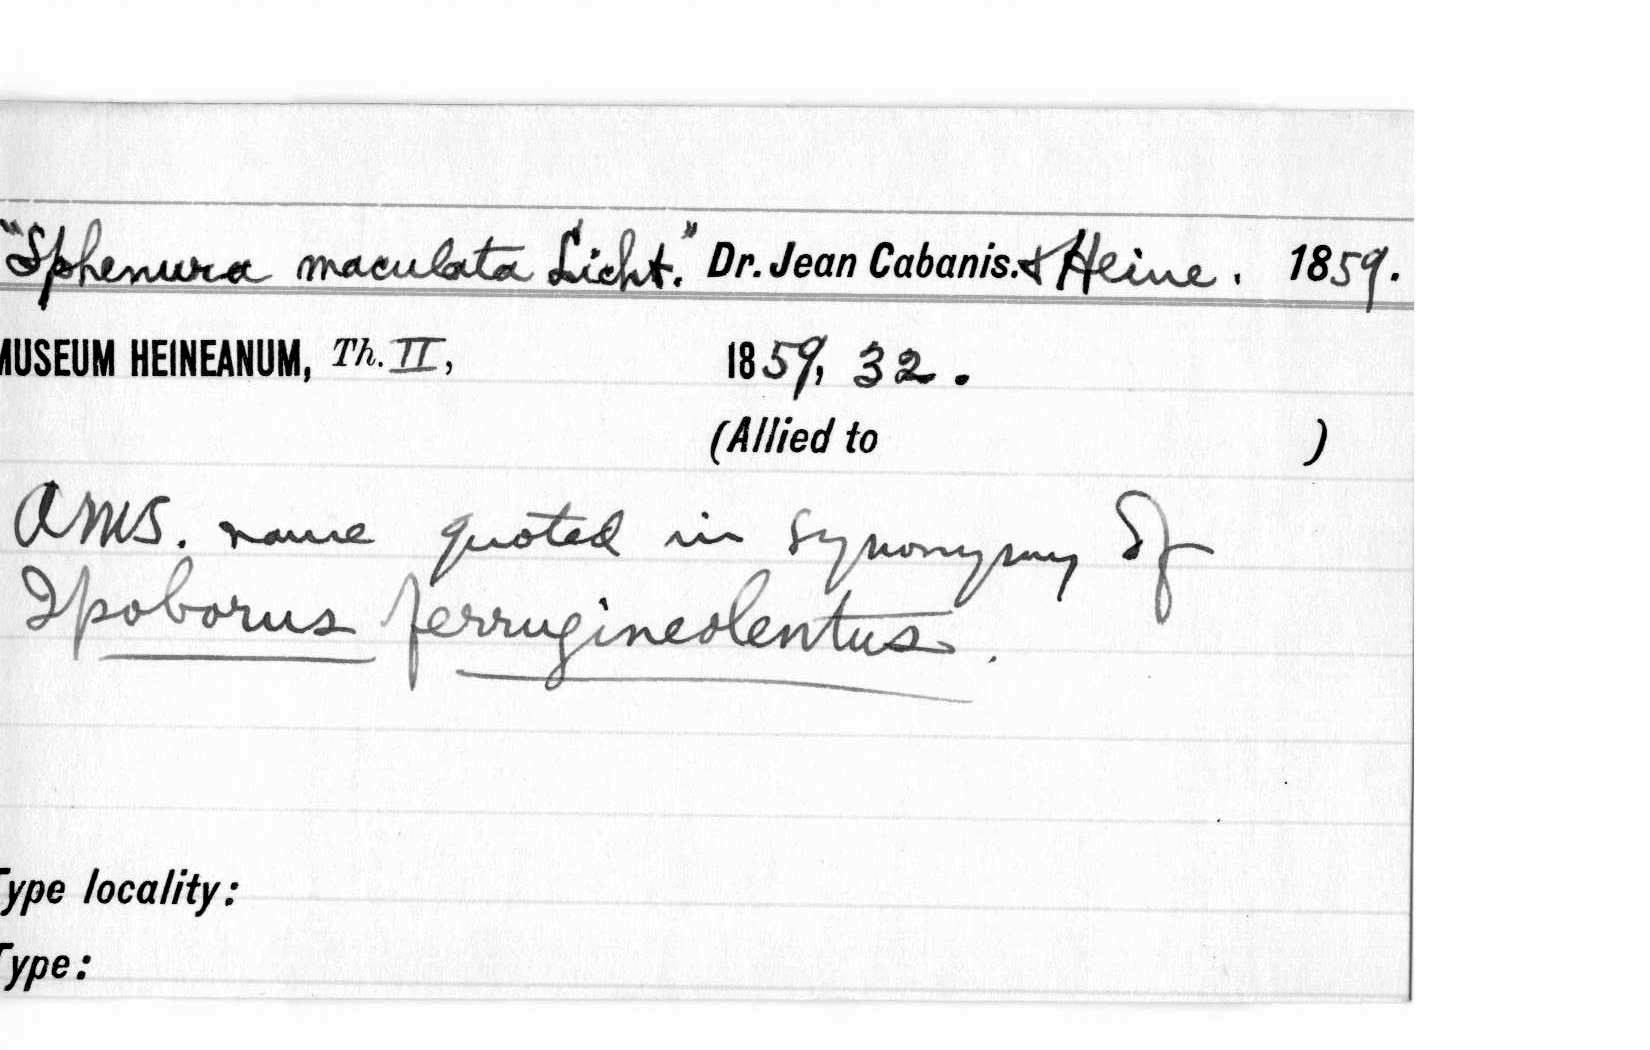 "Sphenura maculata Licht." Dr. Jean Cabanis. & Heine. 1859.
MUSEUM HEINEANUM, Th. II, 1859, 32.
(Allied to )
A MS. name quoted in synonymy of
Ipoborus ferrugineolentus.
Type locality:
Type: